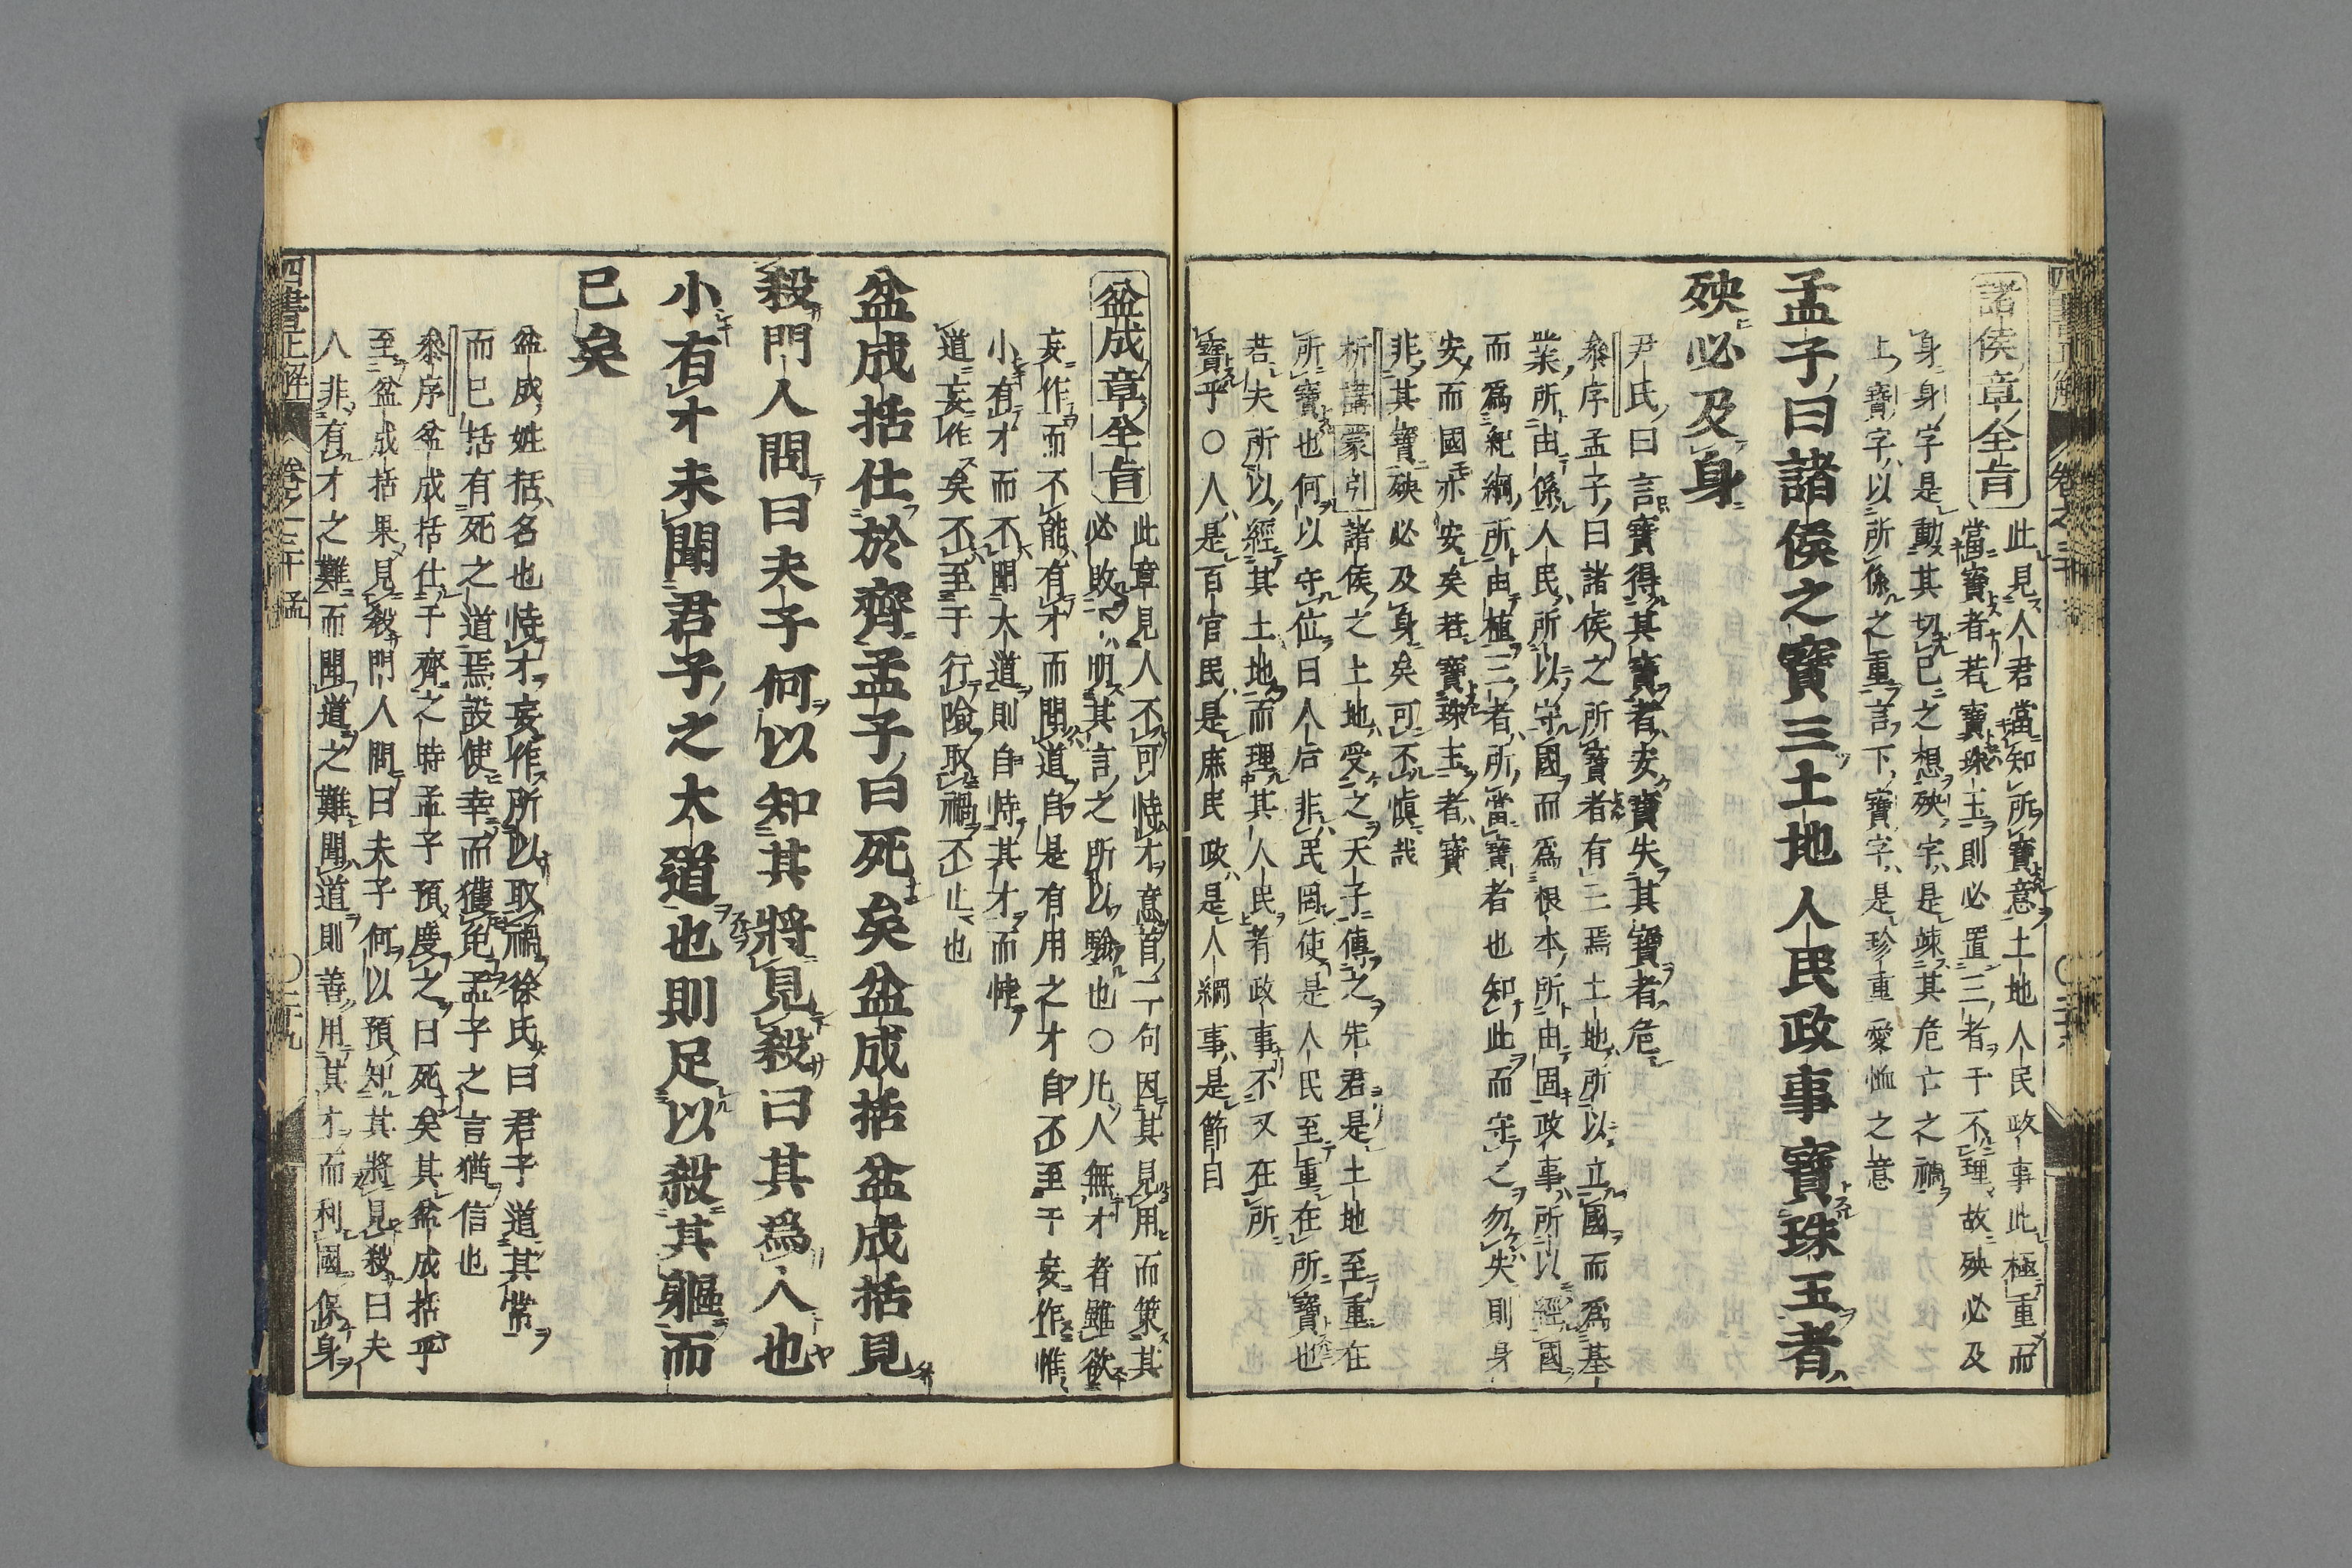 諸侯章全旨
此見人君當知所寶意土地人民政事此極重而
當寶者若寶珠玉則必置三者于不理故殃必及
身身字是動其切己之想殃字是竦其危亡之禍
上寶字以所係之重言下寶字是珍重愛恤之意
孟子曰諸侯之寶三土地人民政事寶珠玉者
殃必及身
尹氏曰言寶得其寶者安寶失其寶者危
叅序孟子曰諸侯之所寶者有三焉土地所以立國而爲基
業所由係人民所以守國而爲根本所由固政事所以經國
而爲紀綱所由植三者所當寶者也知此而守之勿失則身
安而國亦安矣若寶珠玉者寶
非其寶殃必及身矣可不愼哉
析講蒙引諸侯之土地受之天子傳之先君是土地至重在
所寶也何以守位曰人后非民罔使是人民至重在所寶也
若夫所以經其土地而理其人民者政事不又在所
寶乎○人是百官民是庶民政是人綱事是節目
盆成章全旨
此章見人不可恃才意首二句因其見用而策其
必敗下明其言之所以驗也○凡人無才者雖欲
妄作而不能有才而聞道自是有用之才自不至于妄作惟
小有才而不聞大道則自恃其才而悻
道妄作矣不至于行險取禍不止也
盆成括仕於齊孟子曰死矣盆成括盆成括見
殺門人問曰夫子何以知其將見殺曰其爲人也
小有才未聞君子之大道也則足以殺其軀而
已矣
盆成姓括名也恃才妄作所以取禍徐氏曰君子道其常
而已括有死之道焉設使幸而獲免孟子之言猶信也
叅序盆成括仕于齊之時孟子預度之曰死矣其盆成括乎
至盆成括果見殺門人問曰夫子何以預知其將見殺曰夫
人非有才之難而聞道之難聞道則善用其才而利國保身
四書正解
卷之三十 孟
○三十九